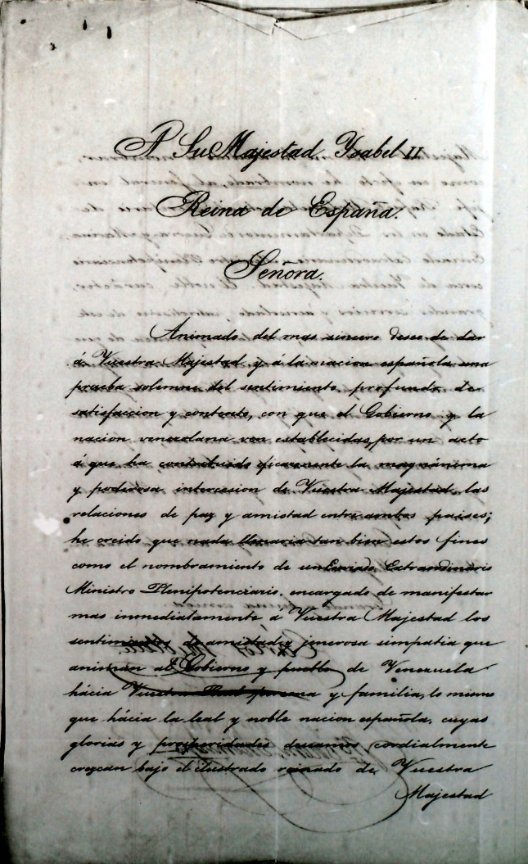 A Su Majestad Ysabel II
Reina de España.
Señora.
Animado del mas sincero deseo de dar
á Vuestra Majestad y á la nacion española una
prueba solemne del sentimiento profundo de
satisfaccion y contento, con que el Gobierno y la
nacion venezolana ven establecidas, por un acto
á que ha contribuido eficazmente la magnánima
y poderosa intercesion de Vuestra Majestad, las
relaciones de paz y amistad entre ambos paises;
he creido que nada llenaria tan bien estos fines
como el nombramiento de un Enviado Extraordinario
Ministro Plenipotenciario, encargado de manifestar
mas inmediatamente á Vuestra Majestad los
sentimientos de amistad y jenerosa simpatia que
animan al Gobierno y pueblo de Venezuela
hácia Vuestra Real persona y familia, lo mismo
que hácia la leal y noble nacion española, cuyas
glorias y prosperidades deseamos cordialmente
crezcan bajo el ilustrado reinado de Vuestra
Majestad